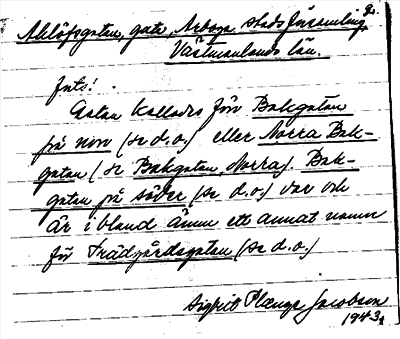 Ahlöfsgatan, gata, Arboga stadsförsamling,
Västmanlands län.
Intr!
Gatan kallades förr Bakgatan
på norr (se d.o.) eller Norra Bak-
gatan (se Bakgatan, Norra). Bak-
gatan på söder (se d.o.) var och
är ibland ännu ett annat namn
för Trädgårdsgatan (se d.o.)
Sigrid Plænge Jacobson
1943.